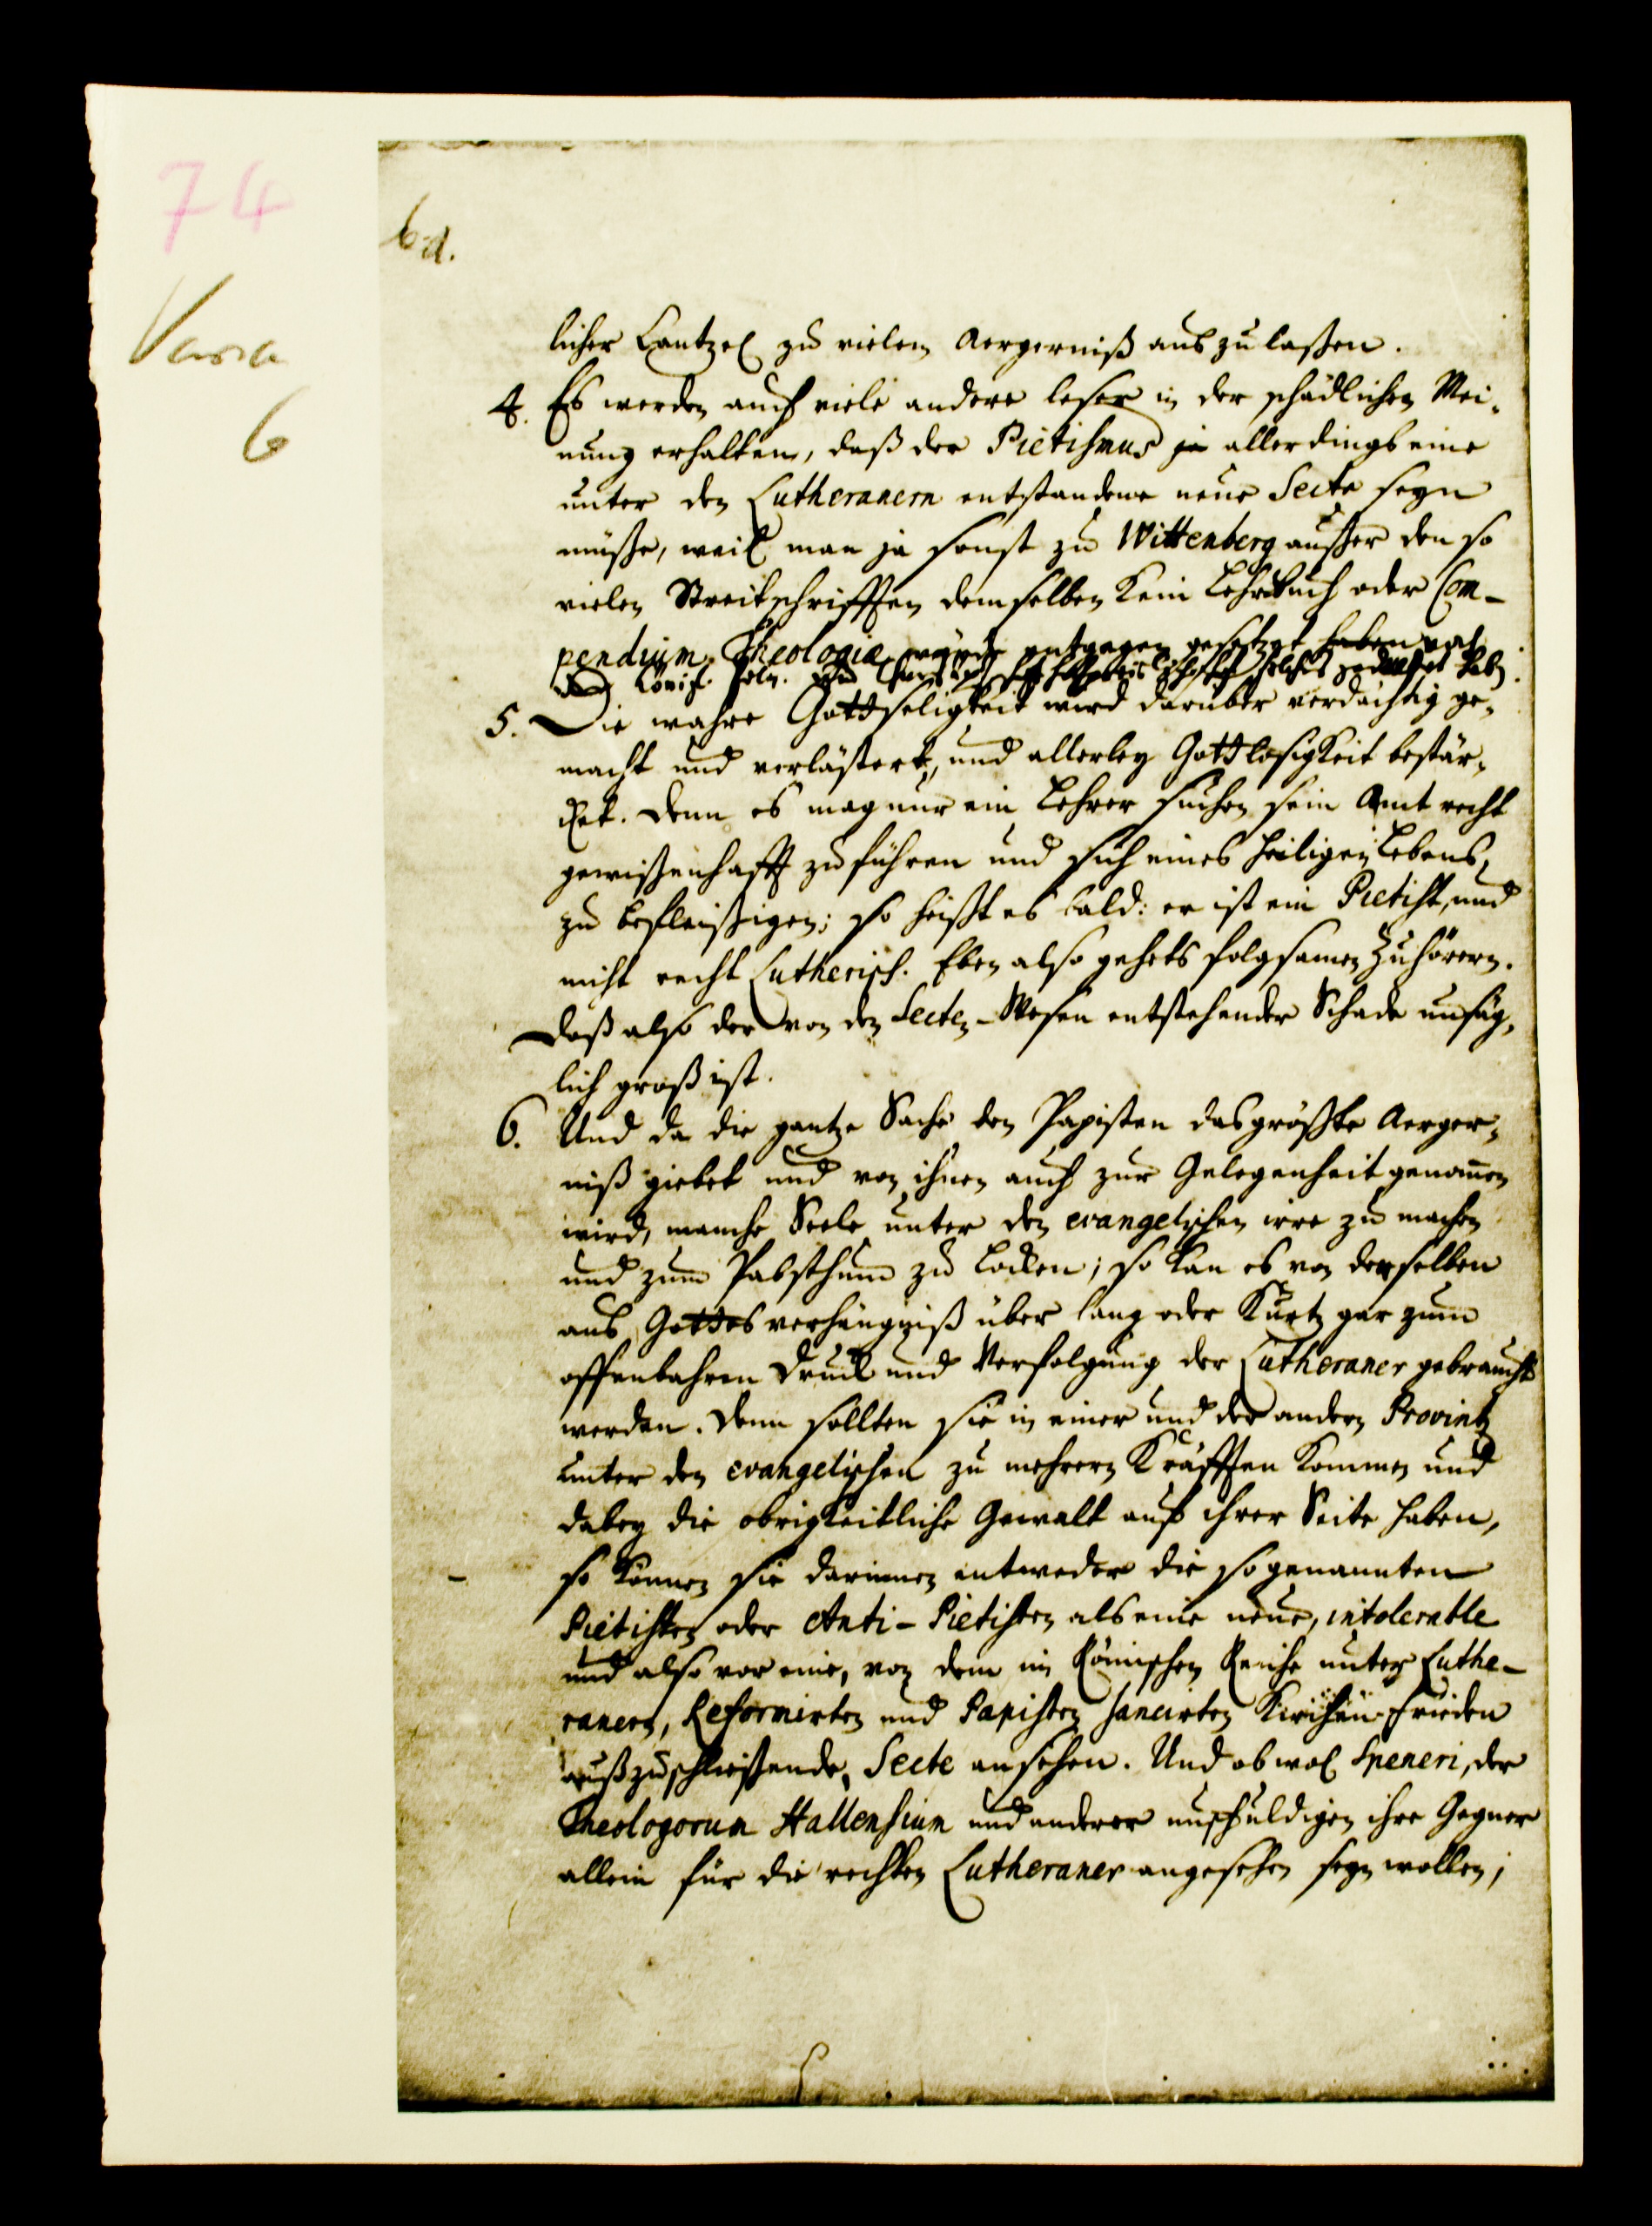 74
Varia
6
6d.
licher Cantzel zu vielem Aergerniß auszulaßen.
4. Es werden auch viele andere leser in der schädlichen Mei-
nung erhalten, daß der Pietismus ja allerdings eine
unter den Lutheranern entstandene neue Secte seyn
müße, weil man ja sonst zu Wittenberg außer den so
vielen Streitschrifften demselben kein Lehrbuch oder Com-
pendium Theologiæ würde entgegen gesetzet haben
Königl. Poln. und solches
5. Die wahre Gottseligkeit wird darüber verdächtig ge-
macht und verlästert, und allerley Gottlosigkeit bestär-
cket. Denn es mag nur ein Lehrer suchen sein Amt recht
gewißenhafft zu führen und sich eines heiligen Lebens
zu befleißigen; so heißt es bald: er ist ein Pietist, und
nicht recht Lutherisch. Eben also gehets folgsamen Zuhörern.
Daß also der von den Secten-Wesen entstehender Schade unsäg-
lich groß ist.
6. Und da die gantze Sache den Papisten das größte Aerger-
niß giebet und von ihnen auch zur Gelegenheit genomen
wird, manche Seele unter den evangelischen irre zu machen
und zum Pabsthum zu locken; so kan es von denselben
aus Gottes verhängniß über lang oder kurtz gar zum
offenbahren Druck und Verfolgung der Lutheraner gebraucht
werden. Denn sollten sie in einer und der andern Provintz
unter den evangelischen zu mehrern Kräfften kommen und
dabey die obrigkeitliche Gewalt auf ihrer Seite haben,
so können sie darinnen entweder die so genannten
Pietisten oder Anti-Pietisten als eine neue, intolerable
und also vor eine, von dem im Römischen Reiche unter Luthe-
ranern, Reformirten und Papisten sancirten Kirchen-Frieden
außzuschließende, Secte ansehen. Und obwol Speneri, der
Theologorum Hallensium und anderer unschuldigen ihre Gegner
allein für die rechten Lutheraner angesehen seyn wollen;